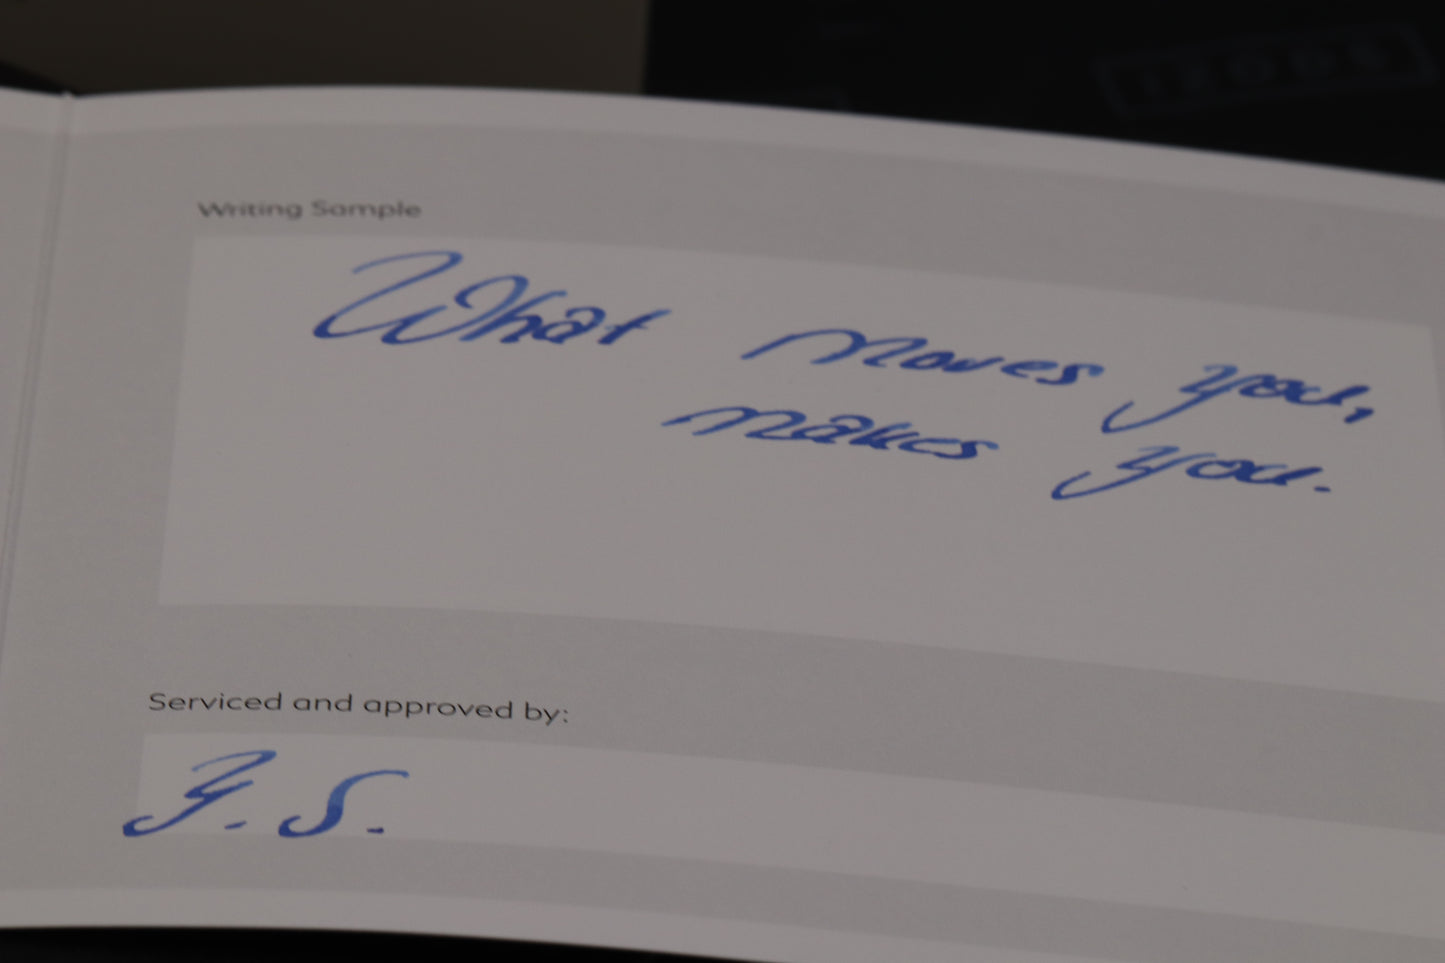 Writing Sample
What moves you,
makes you.
Serviced and approved by:
Y. S.